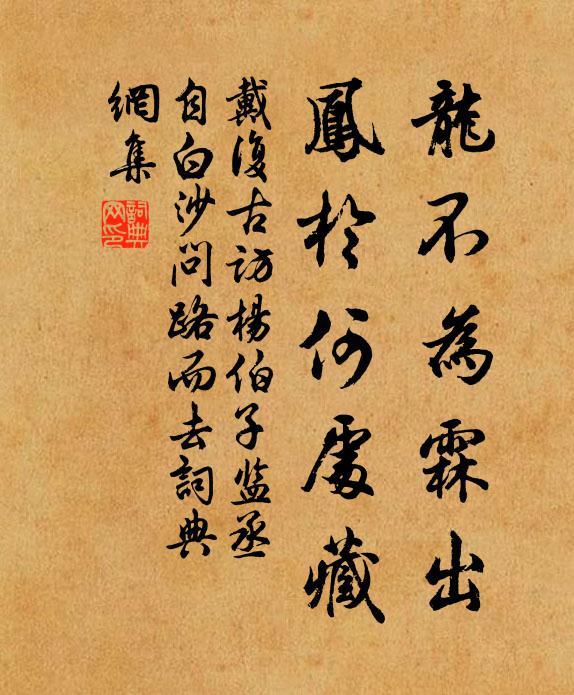 龍不為霖出
鳳於何處藏
戴復古訪楊伯子監丞
自白沙問路而去詞典
網集
詞典
网印